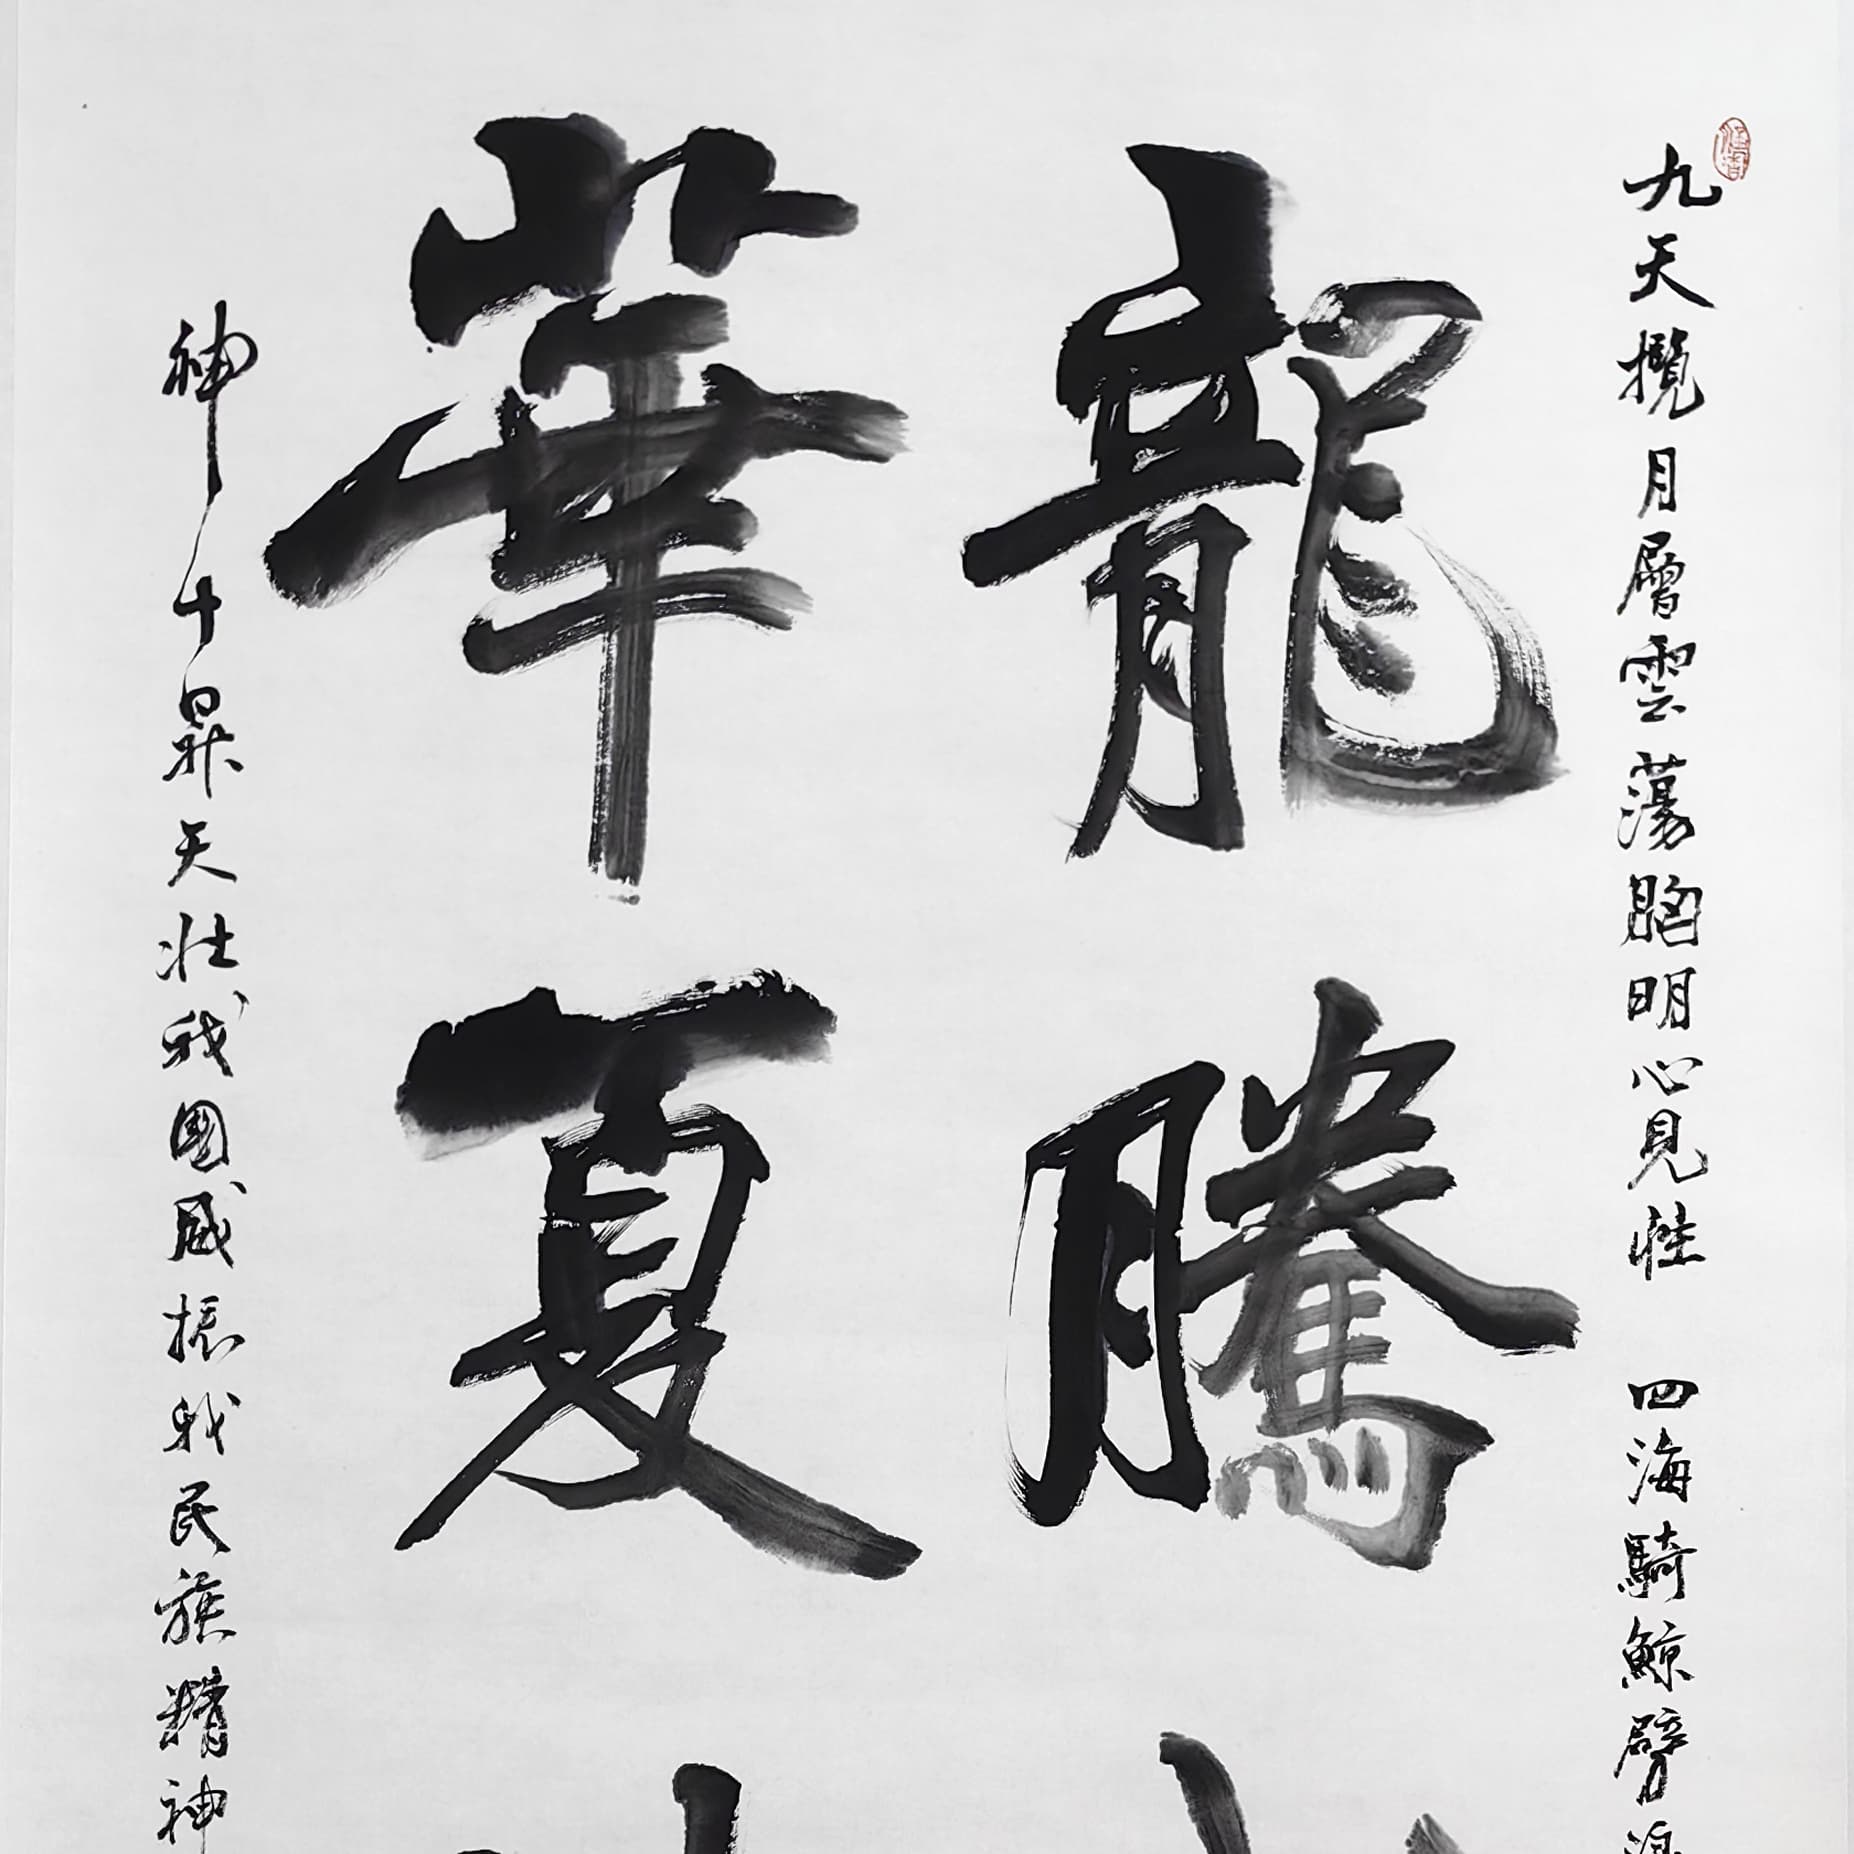 九天攬月層雲蕩胸明心見性 四海騎鯨劈浪
龍騰
華夏
神十昇天壯我國威振我民族精神